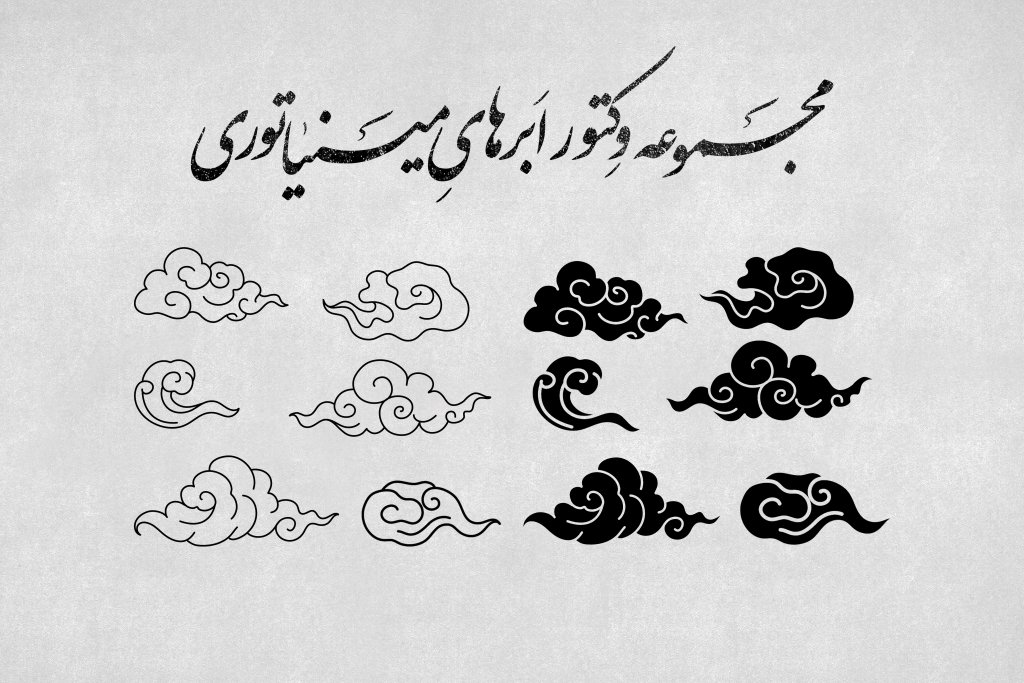 مجموعه وکتور ابرهایِ مینیاتوری